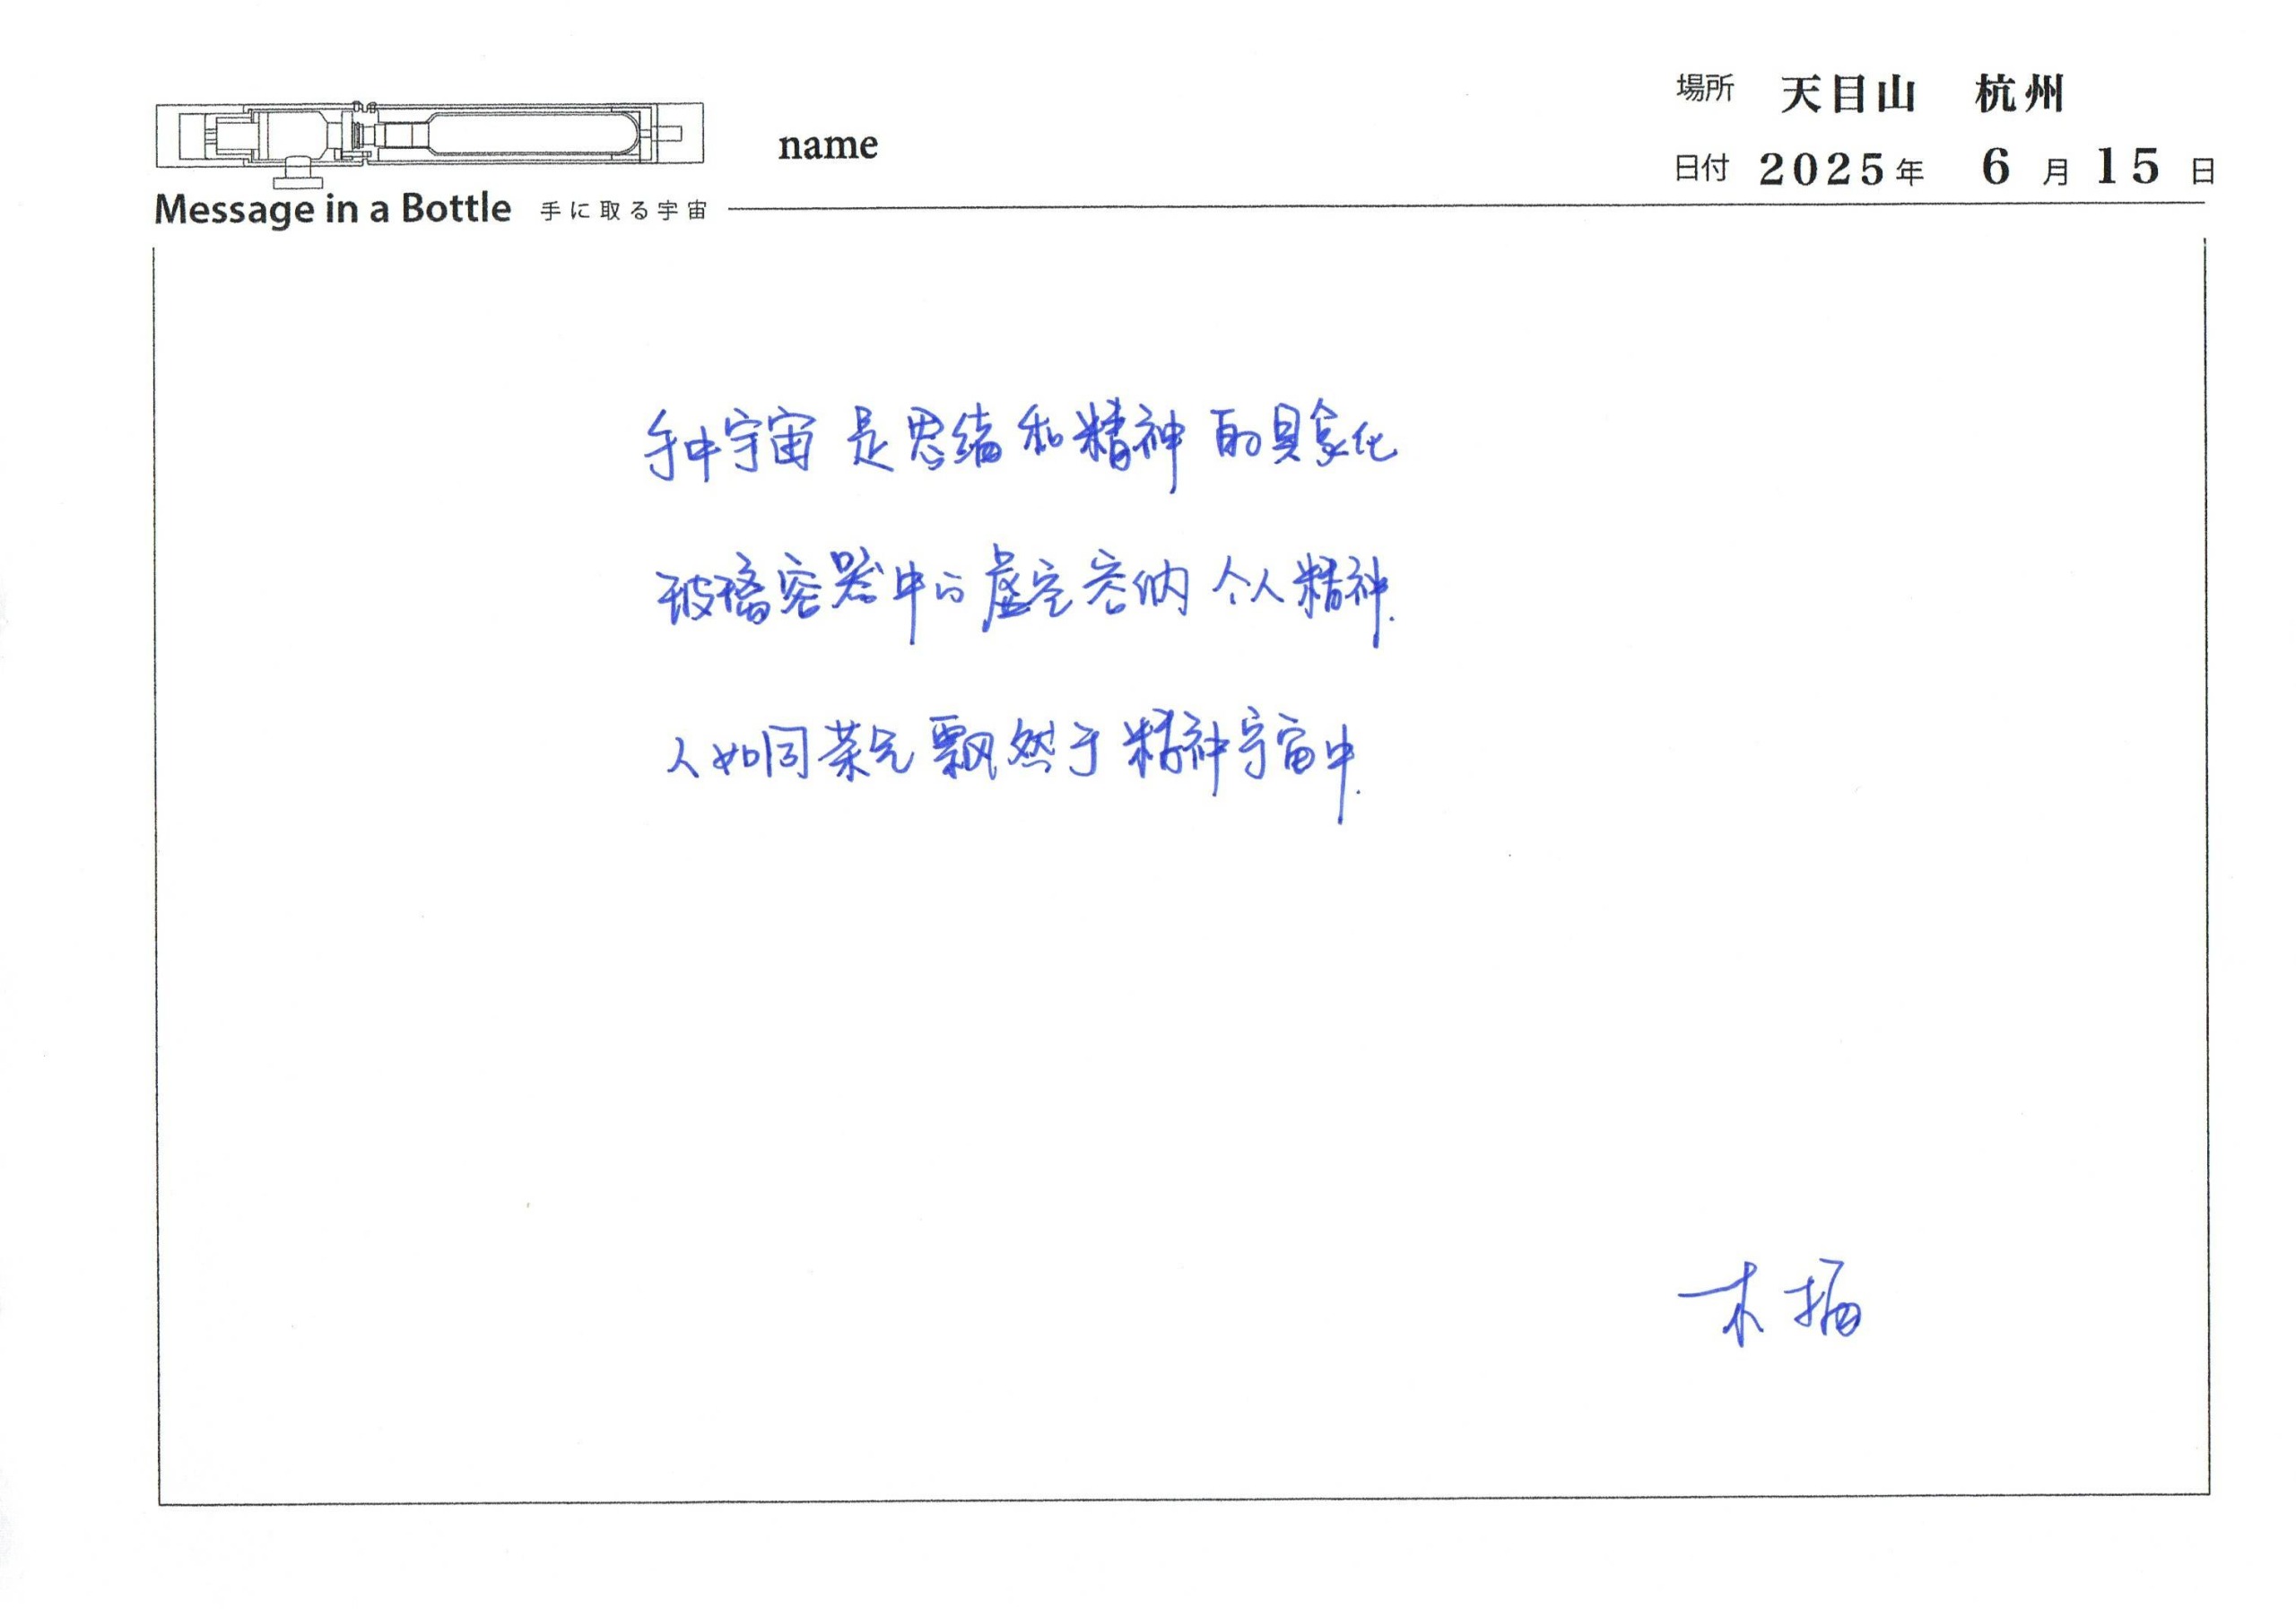 場所 天目山 杭州
name
日付 2025年 6月15日
Message in a Bottle 手に取る宇宙
手中宇宙 是思绪和精神的具象化
玻璃容器中的虚空容纳个人精神.
人如同茶宠飘然于精神宇宙中.